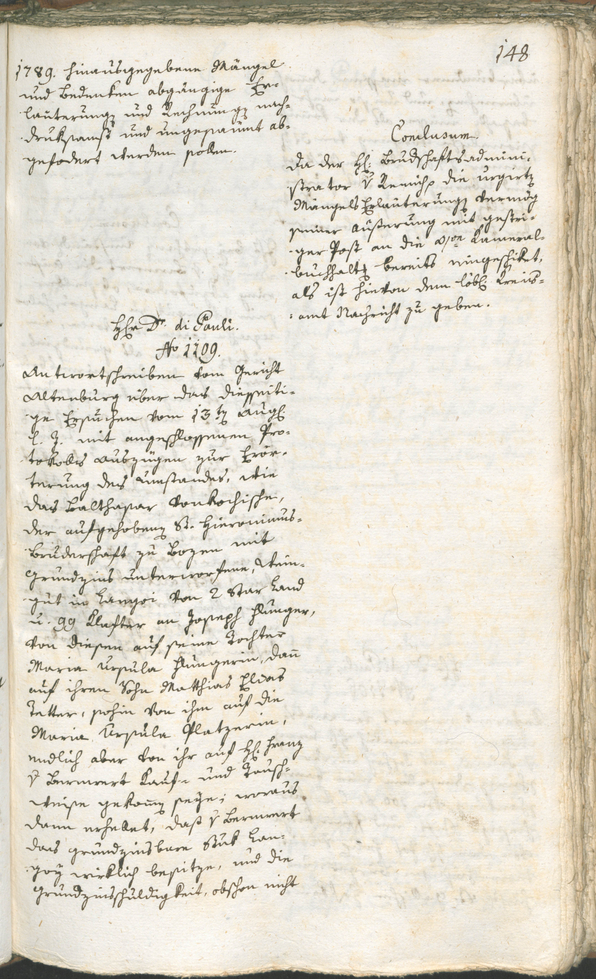 148
1789. hinausgegebene Mängel
und Bedenken abgängige Er-
läuterungen und Rechnungen nach-
druksamst und ungesäumt ab-
gefodert werden sollen.
Conclusum.
Da der H: Bruderschaftsadmini-
strator v die urgirte
Mängels Erläuterung vermög
seiner Äußerung mit gestri-
ger Post an die Kameral-
buchhaltg bereits eingeschikt,
als ist hievon dem löbl. Kreis-
amt Nachricht zu geben.
H: Dr. di Pauli.
No 1109.
Antwortschreiben vom Gericht
Altenburg über das diesseiti-
ge Ersuchen vom 13t Aug
l. J. mit angeschlossenen Pro-
tokolls Auszügen zur Erör-
terung des Umstandes, wie
das Balthasar
der aufgehobenen St. Hieronimus-
bruderschaft zu Bozen mit
Grundzins unterworfene Wein-
gut in Langoi von 2 Star Land
u. 99 Klafter an Joseph Hunger,
von diesen auf seine Tochter
Maria Ursula Hungerin, dan
auf ihren Sohn Matthias
sohin von ihm auf die
Maria Ursula Platzerin,
endlich aber von ihr auf H: Franz
v Kauf- und Tausch-
weise gekommen seye; woraus
dann erhellet, daß v
das grundzinsbare Stük Lan-
goy wirklich besitze, und die
Grundzinsschuldigkeit, obschon nicht